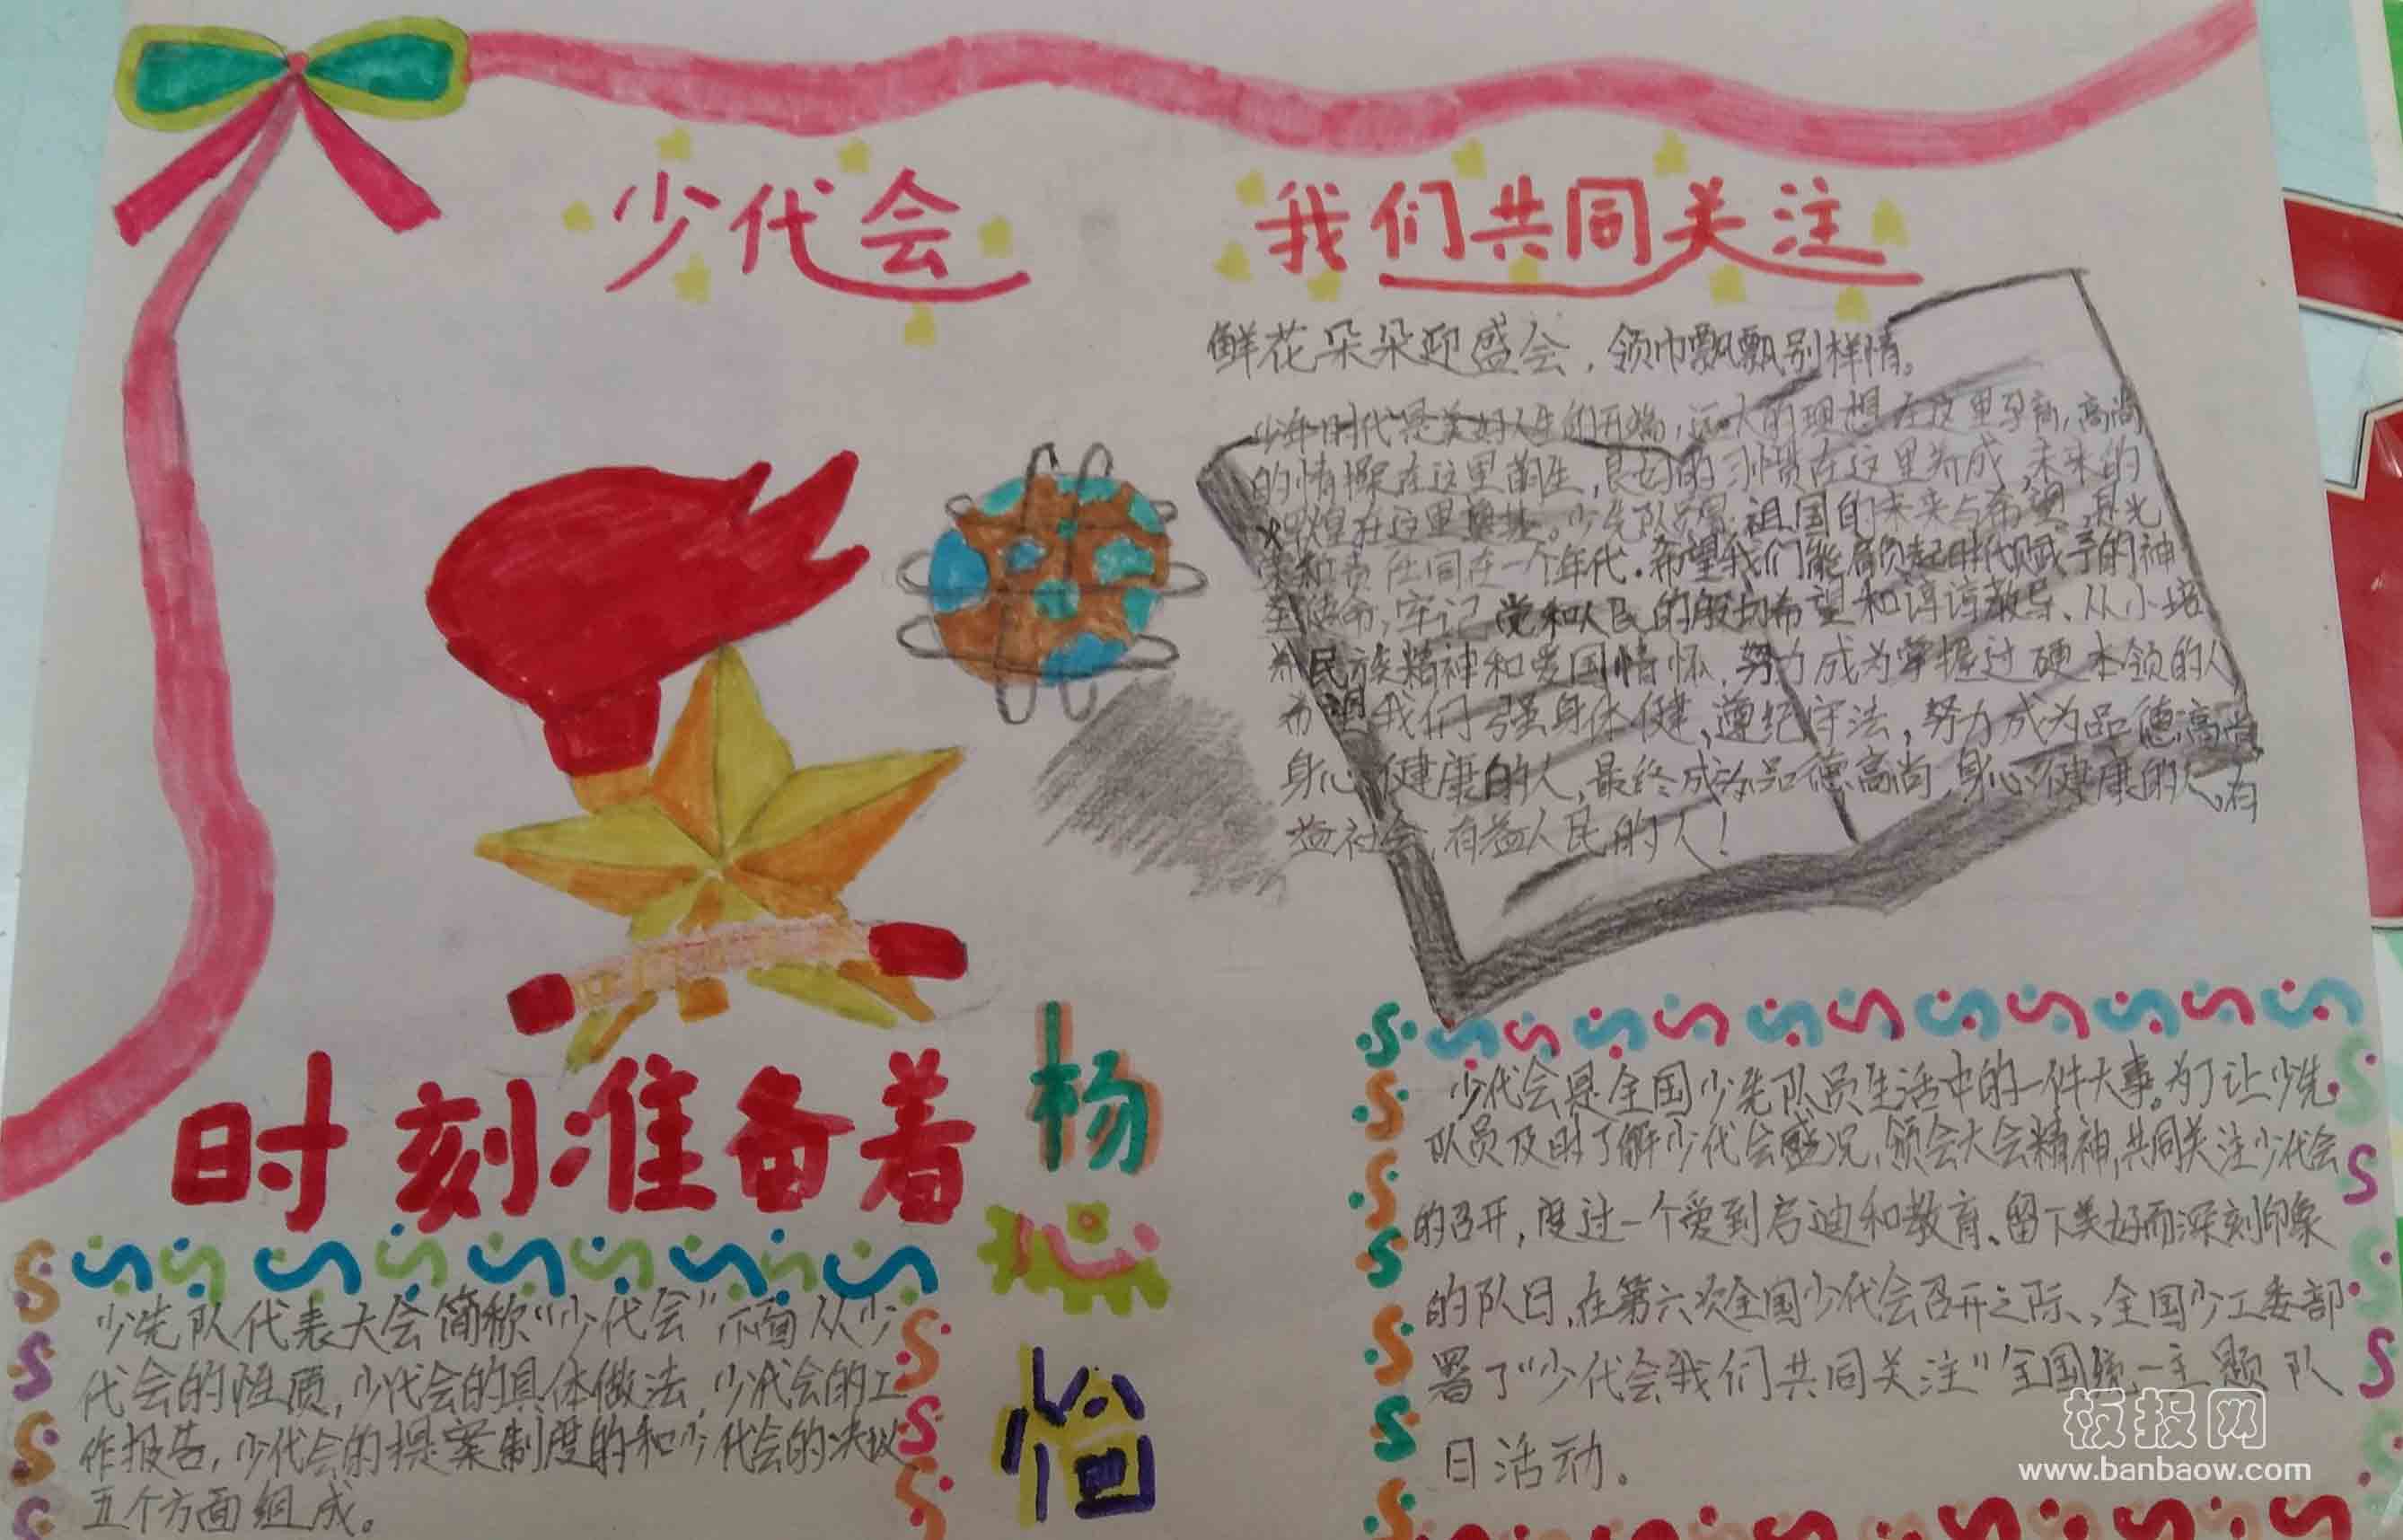 少代会
我们共同关注
鲜花朵朵迎盛会，领巾飘飘别样情。
少年时代是美好人生的开端，远大的理想在这里孕育，高尚
的情操在这里萌生，良好的习惯在这里养成，未来的
辉煌在这里奠基。少先队员是祖国的未来与希望，其光
荣和责任同在一个年代。希望我们能肩负起时代赋予的神
圣使命，牢记党和人民的殷切希望和谆谆教导、从小培
养民族精神和爱国情怀，努力成为掌握过硬本领的人，
希望我们强身体健，遵纪守法，努力成为品德高尚
身心健康的人，最终成为品德高尚，身心健康的人、有
益社会，有益人民的人！
时刻准备着
杨
心
怡
少先队代表大会简称“少代会” 从少
代会的性质，少代会的具体做法，少代会的工
作报告，少代会的提案制度的和少代会的决议
五个方面组成。
少代会是全国少先队员生活中的一件大事。为了让少先
队员及时了解少代会盛况、领会大会精神，共同关注少代会
的召开，度过一个受到启迪和教育、留下美好而深刻印象
的队日，在第六次全国少代会召开之际、全国少工委部
署了“少代会我们共同关注”全国统一主题队
日活动。
板报网
www.banbaow.com